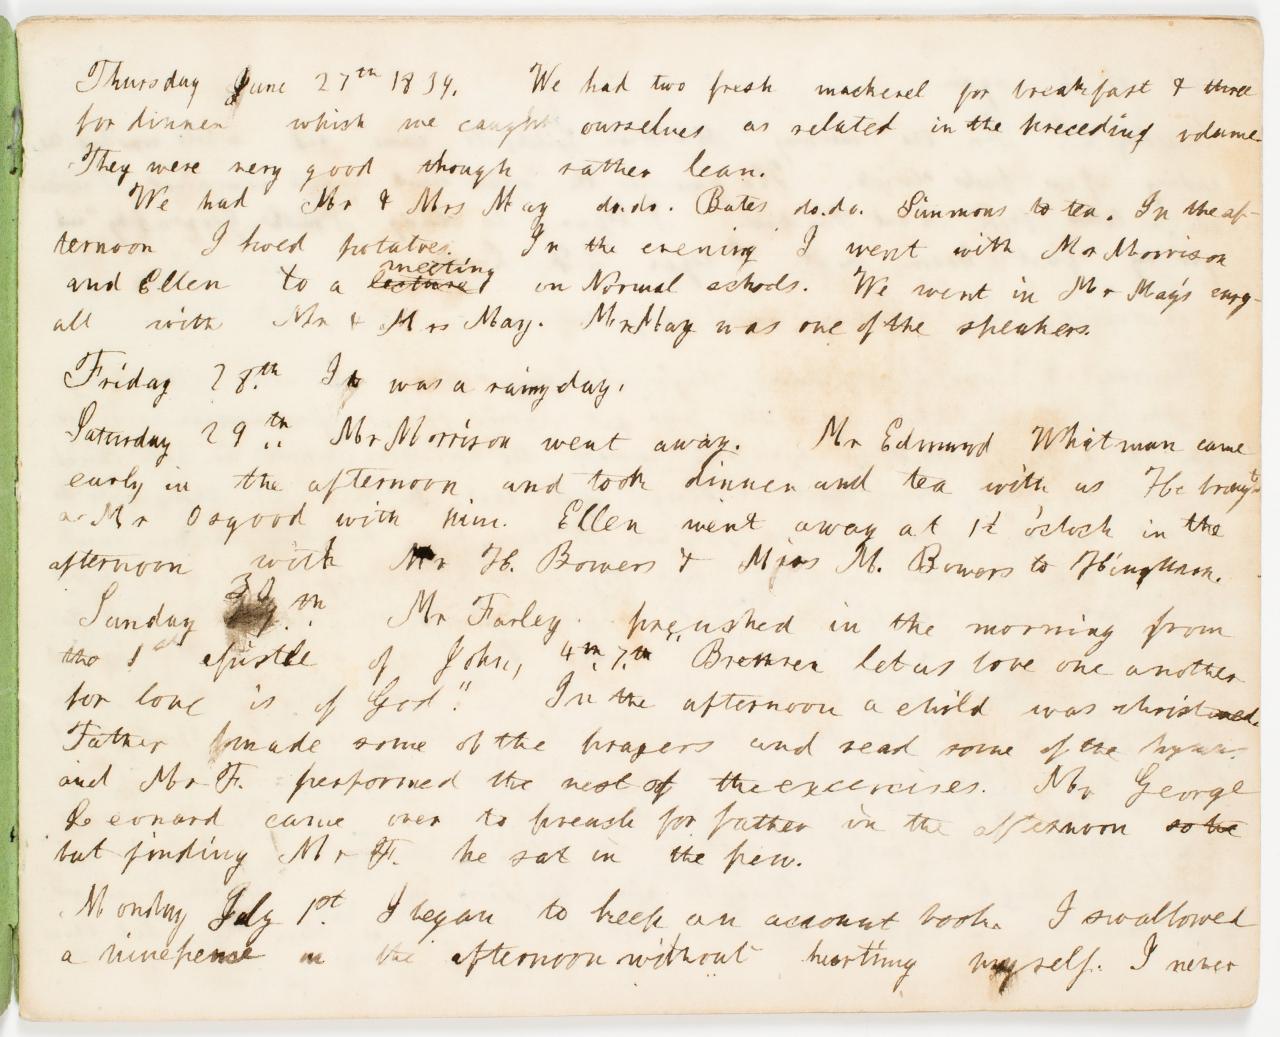 Thursday June 27th 1839. We had two fresh mackerel for breakfast & three
for dinner which we caught ourselves as related in the preceding volume
They were very good though rather lean.
We had Mr & Mrs May do.do. Bates do.do. Simmons to tea. In the af-
ternoon I hoed potatoes. In the evening I went with Mr Morrison
and Ellen to a lecture meeting on Normal schools. We went in Mr May's carry-
all with Mr & Mrs May. Mr May was one of the speakers.
Friday 28th. It was a rainy day.
Saturday 29th. Mr Morrison went away. Mr Edmund Whitman came
early in the afternoon and took dinner and tea with us He brought
a Mr Osgood with him. Ellen went away at 1½ o'clock in the
afternoon with Mr H. Bowers & Miss M. Bowers to Hingham.
Sunday 30th. Mr Farley preached in the morning from
the 1st epistle of John, 4th, 7th "Brethren let us love one another
for love is of God." In the afternoon a child was christened.
Father made some of the prayers and read some of the hymns.
and Mr F. performed the rest of the excercises. Mr George
Leonard came over to preach for father in the afternoon so he
but finding Mr F. he sat in the pew.
Monday July 1st. I began to keep an account book. I swallowed
a ninepence in the afternoon without hurting myself. I never